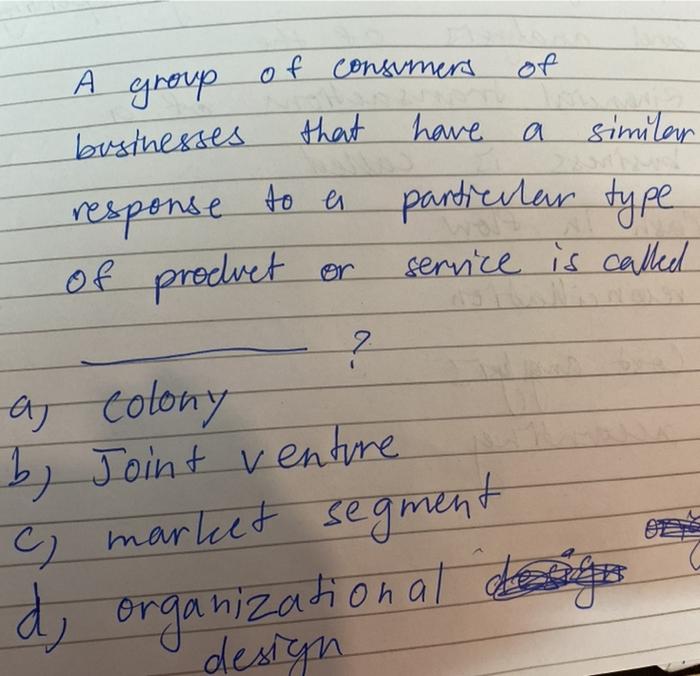 A group of consumers of
businesses that have a similar
response to a particular type
of product or service is called
__________ ?
a, colony
b, Joint venture
c, market segment
d, organizational
design